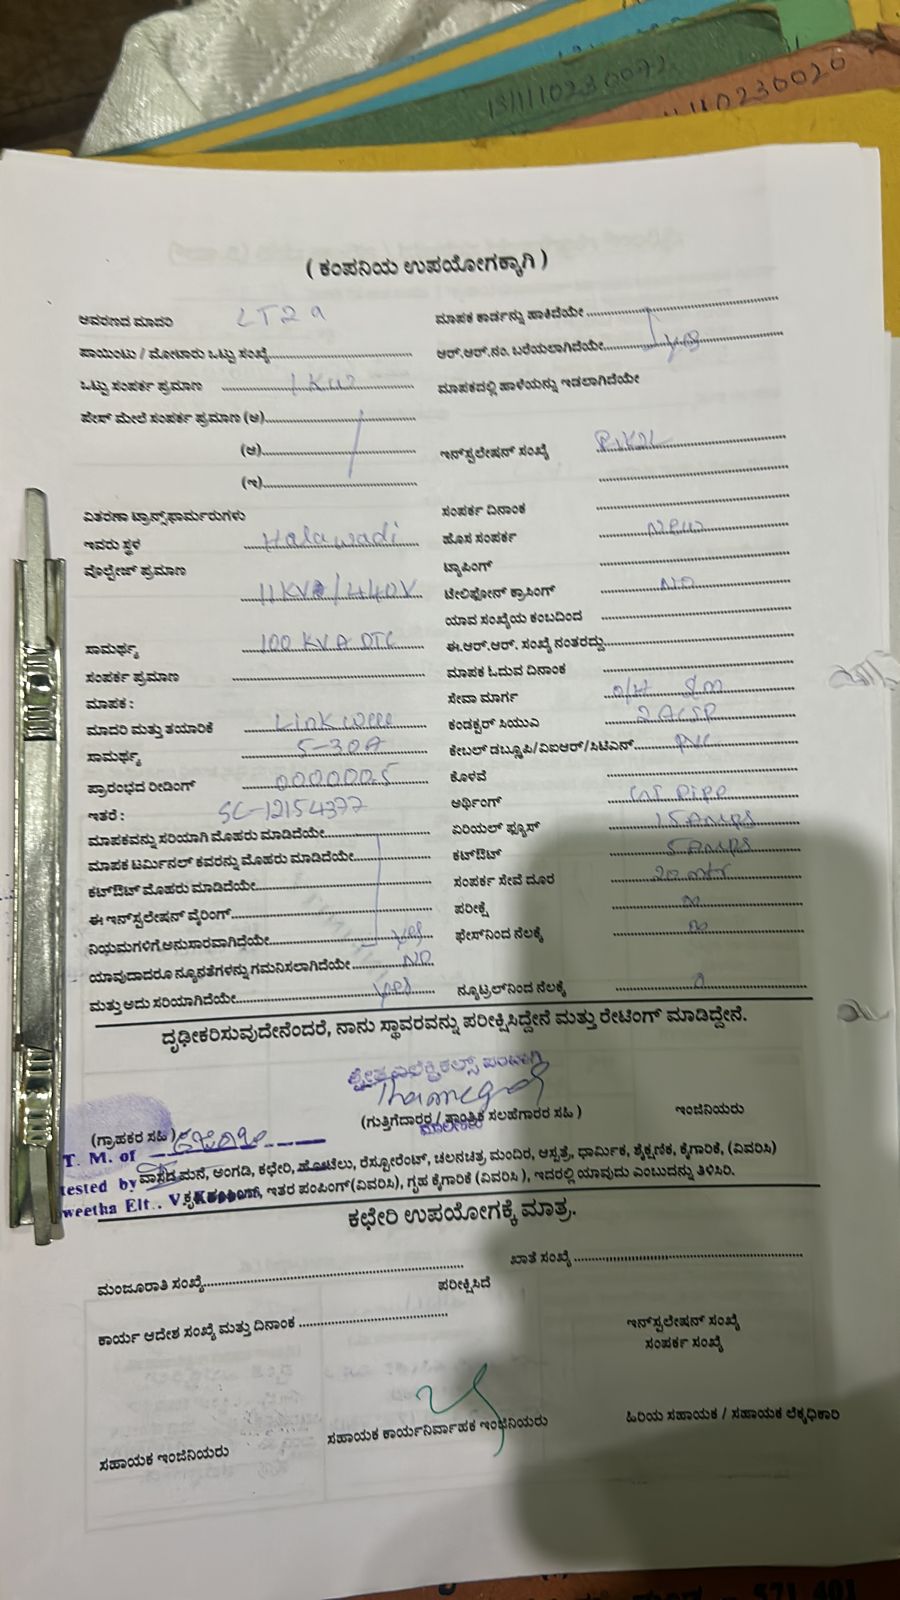 13111102300
10230020
( ಕಂಪನಿಯ ಉಪಯೋಗಕ್ಕಾಗಿ )
ಆವರಣದ ಮಾದರಿ LT2a
ಮಾಪಕ ಕಾರ್ಡನ್ನು ಹಾಕಿದೆಯೇ
ಪಾಯಿಂಟು / ಮೋಟಾರು ಒಟ್ಟು ಸಂಖ್ಯೆ
ಆರ್.ಆರ್.ನಂ. ಬರೆಯಲಾಗಿದೆಯೇ yes
ಒಟ್ಟು ಸಂಪರ್ಕ ಪ್ರಮಾಣ 1 KW
ಮಾಪಕದಲ್ಲಿ ಹಾಳೆಯನ್ನು ಇಡಲಾಗಿದೆಯೇ
ಫೇಸ್ ಮೇಲೆ ಸಂಪರ್ಕ ಪ್ರಮಾಣ (ಅ)
(ಆ)
ಇನ್‌ಸ್ಟಲೇಷನ್ ಸಂಖ್ಯೆ
(ಇ)
ವಿತರಣಾ ಟ್ರಾನ್ಸ್‌ಫಾರ್ಮರುಗಳು
ಸಂಪರ್ಕ ದಿನಾಂಕ
ಇವರು ಸ್ಥಳ Halawadi
ಹೊಸ ಸಂಪರ್ಕ New
ವೊಲ್ಟೇಜ್ ಪ್ರಮಾಣ
ಟ್ಯಾಪಿಂಗ್
11KVA/440V
ಟೇಲಿಫೋನ್ ಕ್ರಾಸಿಂಗ್ NO
ಯಾವ ಸಂಖ್ಯೆಯ ಕಂಬದಿಂದ
ಸಾಮರ್ಥ್ಯ 100 KVA DTC
ಈ.ಆರ್.ಆರ್. ಸಂಖ್ಯೆ ನಂತರದ್ದು
ಸಂಪರ್ಕ ಪ್ರಮಾಣ
ಮಾಪಕ ಓದುವ ದಿನಾಂಕ
ಮಾಪಕ :
ಸೇವಾ ಮಾರ್ಗ O/H
ಮಾದರಿ ಮತ್ತು ತಯಾರಿಕೆ Linkwell
ಕಂಡಕ್ಟರ್ ಸಿಯುಎ 2ACSR
ಸಾಮರ್ಥ್ಯ 5-30A
ಕೇಬಲ್ ಡಬ್ಲೂಪಿ/ವಿಐಆರ್/ಸಿಟಿಎಸ್ PVC
ಪ್ರಾರಂಭದ ರೀಡಿಂಗ್ 0000005
ಕೊಳವೆ
ಇತರೆ : SC-12154377
ಅರ್ಥಿಂಗ್ GI Pipe
ಮಾಪಕವನ್ನು ಸರಿಯಾಗಿ ಮೊಹರು ಮಾಡಿದೆಯೇ
ಏರಿಯಲ್ ಫ್ಯೂಸ್ 15 Amps
ಮಾಪಕ ಟರ್ಮಿನಲ್ ಕವರನ್ನು ಮೊಹರು ಮಾಡಿದೆಯೇ
ಕಟ್‌ಔಟ್ 5 Amps
ಕಟ್‌ಔಟ್ ಮೊಹರು ಮಾಡಿದೆಯೇ
ಸಂಪರ್ಕ ಸೇವೆ ದೂರ 20 mtr
ಈ ಇನ್‌ಸ್ಟಲೇಷನ್ ವೈರಿಂಗ್
ಪರೀಕ್ಷೆ ∞
ನಿಯಮಗಳಿಗೆ ಅನುಸಾರವಾಗಿದೆಯೇ yes
ಫೇಸ್‌ನಿಂದ ನೆಲಕ್ಕೆ ∞
ಯಾವುದಾದರೂ ನ್ಯೂನತೆಗಳನ್ನು ಗಮನಿಸಲಾಗಿದೆಯೇ NO
ಮತ್ತು ಅದು ಸರಿಯಾಗಿದೆಯೇ yes
ನ್ಯೂಟ್ರಲ್‌ನಿಂದ ನೆಲಕ್ಕೆ 0
ದೃಢೀಕರಿಸುವುದೇನೆಂದರೆ, ನಾನು ಸ್ಥಾವರವನ್ನು ಪರೀಕ್ಷಿಸಿದ್ದೇನೆ ಮತ್ತು ರೇಟಿಂಗ್ ಮಾಡಿದ್ದೇನೆ.
(ಗ್ರಾಹಕರ ಸಹಿ)
(ಗುತ್ತಿಗೆದಾರರ / ತಾಂತ್ರಿಕ ಸಲಹೆಗಾರರ ಸಹಿ )
ಇಂಜಿನಿಯರು
T. M. of
ವಾಸದ ಮನೆ, ಅಂಗಡಿ, ಕಛೇರಿ, ಹೋಟೆಲು, ರೆಸ್ಟೋರೆಂಟ್, ಚಲನಚಿತ್ರ ಮಂದಿರ, ಆಸ್ಪತ್ರೆ, ಧಾರ್ಮಿಕ, ಶೈಕ್ಷಣಿಕ, ಕೈಗಾರಿಕೆ, (ವಿವರಿಸಿ)
tested by
weetha Elt., V. ಇತರ ಪಂಪಿಂಗ್(ವಿವರಿಸಿ), ಗೃಹ ಕೈಗಾರಿಕೆ (ವಿವರಿಸಿ ), ಇದರಲ್ಲಿ ಯಾವುದು ಎಂಬುದನ್ನು ತಿಳಿಸಿರಿ.
ಕಛೇರಿ ಉಪಯೋಗಕ್ಕೆ ಮಾತ್ರ.
ಮಂಜೂರಾತಿ ಸಂಖ್ಯೆ
ಖಾತೆ ಸಂಖ್ಯೆ
ಪರೀಕ್ಷಿಸಿದೆ
ಕಾರ್ಯ ಆದೇಶ ಸಂಖ್ಯೆ ಮತ್ತು ದಿನಾಂಕ
ಇನ್‌ಸ್ಟಲೇಷನ್ ಸಂಖ್ಯೆ
ಸಂಪರ್ಕ ಸಂಖ್ಯೆ
ಸಹಾಯಕ ಇಂಜಿನಿಯರು
ಸಹಾಯಕ ಕಾರ್ಯನಿರ್ವಾಹಕ ಇಂಜಿನಿಯರು
ಹಿರಿಯ ಸಹಾಯಕ / ಸಹಾಯಕ ಲೆಕ್ಕಾಧಿಕಾರಿ
571 401